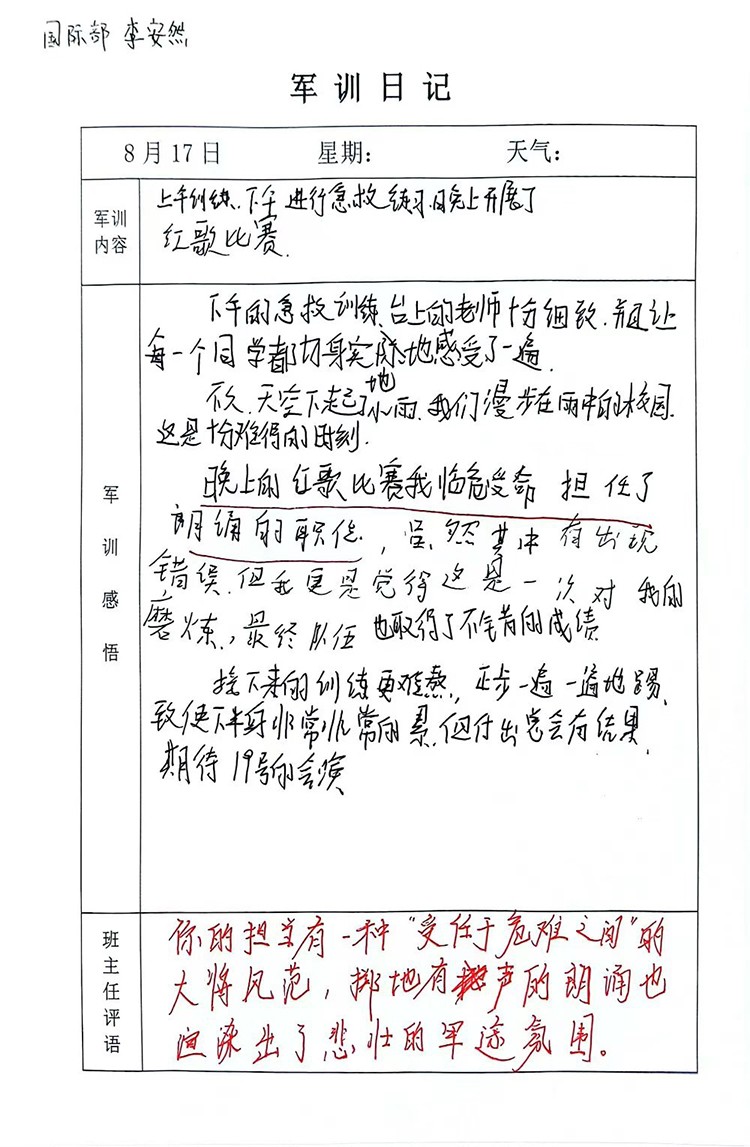 国际部 李安然
军训日记
8月17日 星期: 天气:
军训
内容
上午训练.下午进行急救练习,晚上开展了
红歌比赛.
军训感悟
下午的急救训练,台上的老师十分细致.并且让
每一个同学都切身实际地感受了一遍.
不久,天空下起了小雨.我们漫步在雨中的校园.
地
这是十分难得的时刻.
晚上的红歌比赛我临危受命 担任了
朗诵的职位,虽然其中有出现
错误.但我更是觉得这是一次对我的
磨炼,最终队伍也取得了不错的成绩
接下来的训练更难熬,正步一遍一遍地踢,
致使下半身非常非常的累,但付出总会有结果,
期待19号的会演
班主任评语
你的担当有一种“受任于危难之间”的
大将风范,掷地有声的朗诵也
渲染出了悲壮的军途氛围。